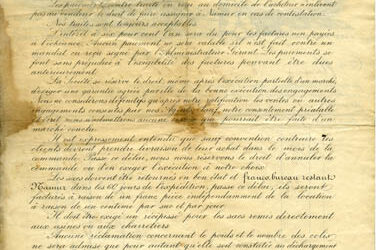 Les paiements contre traite ou reçu au domicile de l'acheteur n'entraînent
pas de
le droit de faire assigner à Namur en cas de contestation.
Nos traités sont toujours acceptables.
L'intérêt à six pour cent l'an sera dû pour les factures non payées
à l'échéance. Aucun paiement ne sera valable s'il n'est fait contre un
mandat ou reçu signé par l'Administrateur Gérant. Les paiements se
font sans préjudice à l'exigibilité des factures pouvant être dues
antérieurement.
La Société se réserve le droit, même après l'exécution partielle d'un marché,
d'exiger une garantie agréée par elle de la bonne exécution des engagements
Nous ne considérons définitifs qu'après notre ratification les ventes ou autres
engagements consentis par nos notre consentement préalable
nous n'admettrons aucune pourrait être faite d'un
marché conclu.
Il est expressément entendu que sauf convention contraire les
clients devront prendre livraison de leur achat dans le mois de la
commande. Passé ce délai, nous nous réservons le droit d'annuler la
commande ou d'en exiger l'exécution à notre choix.
Les sacs devront être retournés en bon état et franco bureau restant
Namur dans les 60 jours de l'expédition, passé ce délai, ils seront
facturés à raison de un franc pièce indépendamment de la location
à raison de un centime par sac et par jour.
Il doit être exigé un récépissé pour les sacs remis directement
aux ou aux charretiers.
Aucune réclamation concernant le poids et le nombre des colis
ne sera admise que pour autant qu'elle soit constatée au déchargement